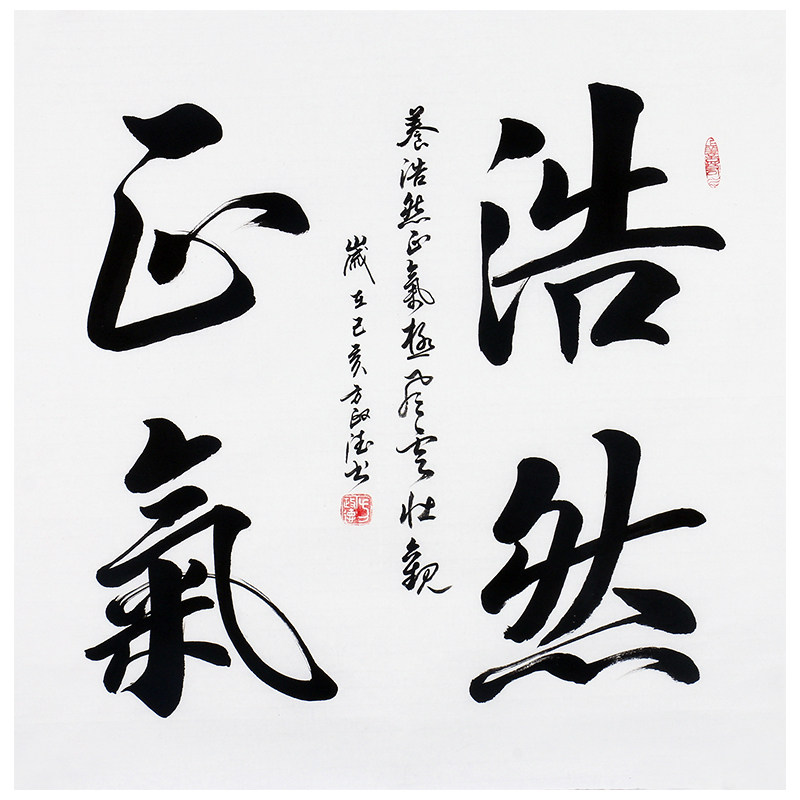 浩然
正氣
養浩然正氣極風雲壯觀
歲在己亥方政德書